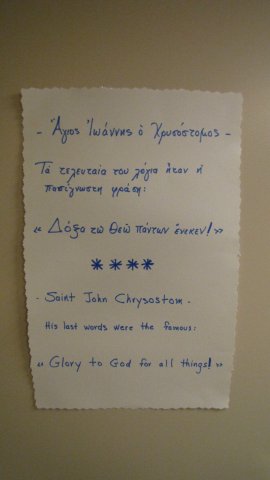 - Ἅγιος Ἰωάννης ὁ Χρυσόστομος -
Τά τελευταία του λόγια ἦταν ἡ
πασίγνωστη φράση:
« Δόξα τῶ Θεῶ πάντων ἕνεκεν! »
****
- Saint John Chrysostom -
His last words were the famous:
« Glory to God for all things! »